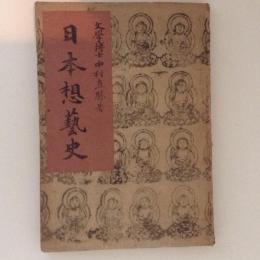 文學博士 中村直勝著
日本想藝史